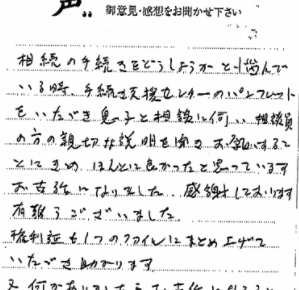 声
御意見・感想をお聞かせ下さい
相続の手続きをどうしようかと悩んで
いる時、手続き支援センターのパンフレット
をいただき息子と相談に伺い 相談員
の方の親切な説明を聞き お願いするこ
とにきめ ほんとに良かったと思っています
お世話になりました 感謝しております
有難うございました
権利証も1つのファイルにまとめ上げて
いただき助かります
又 何かありましたら